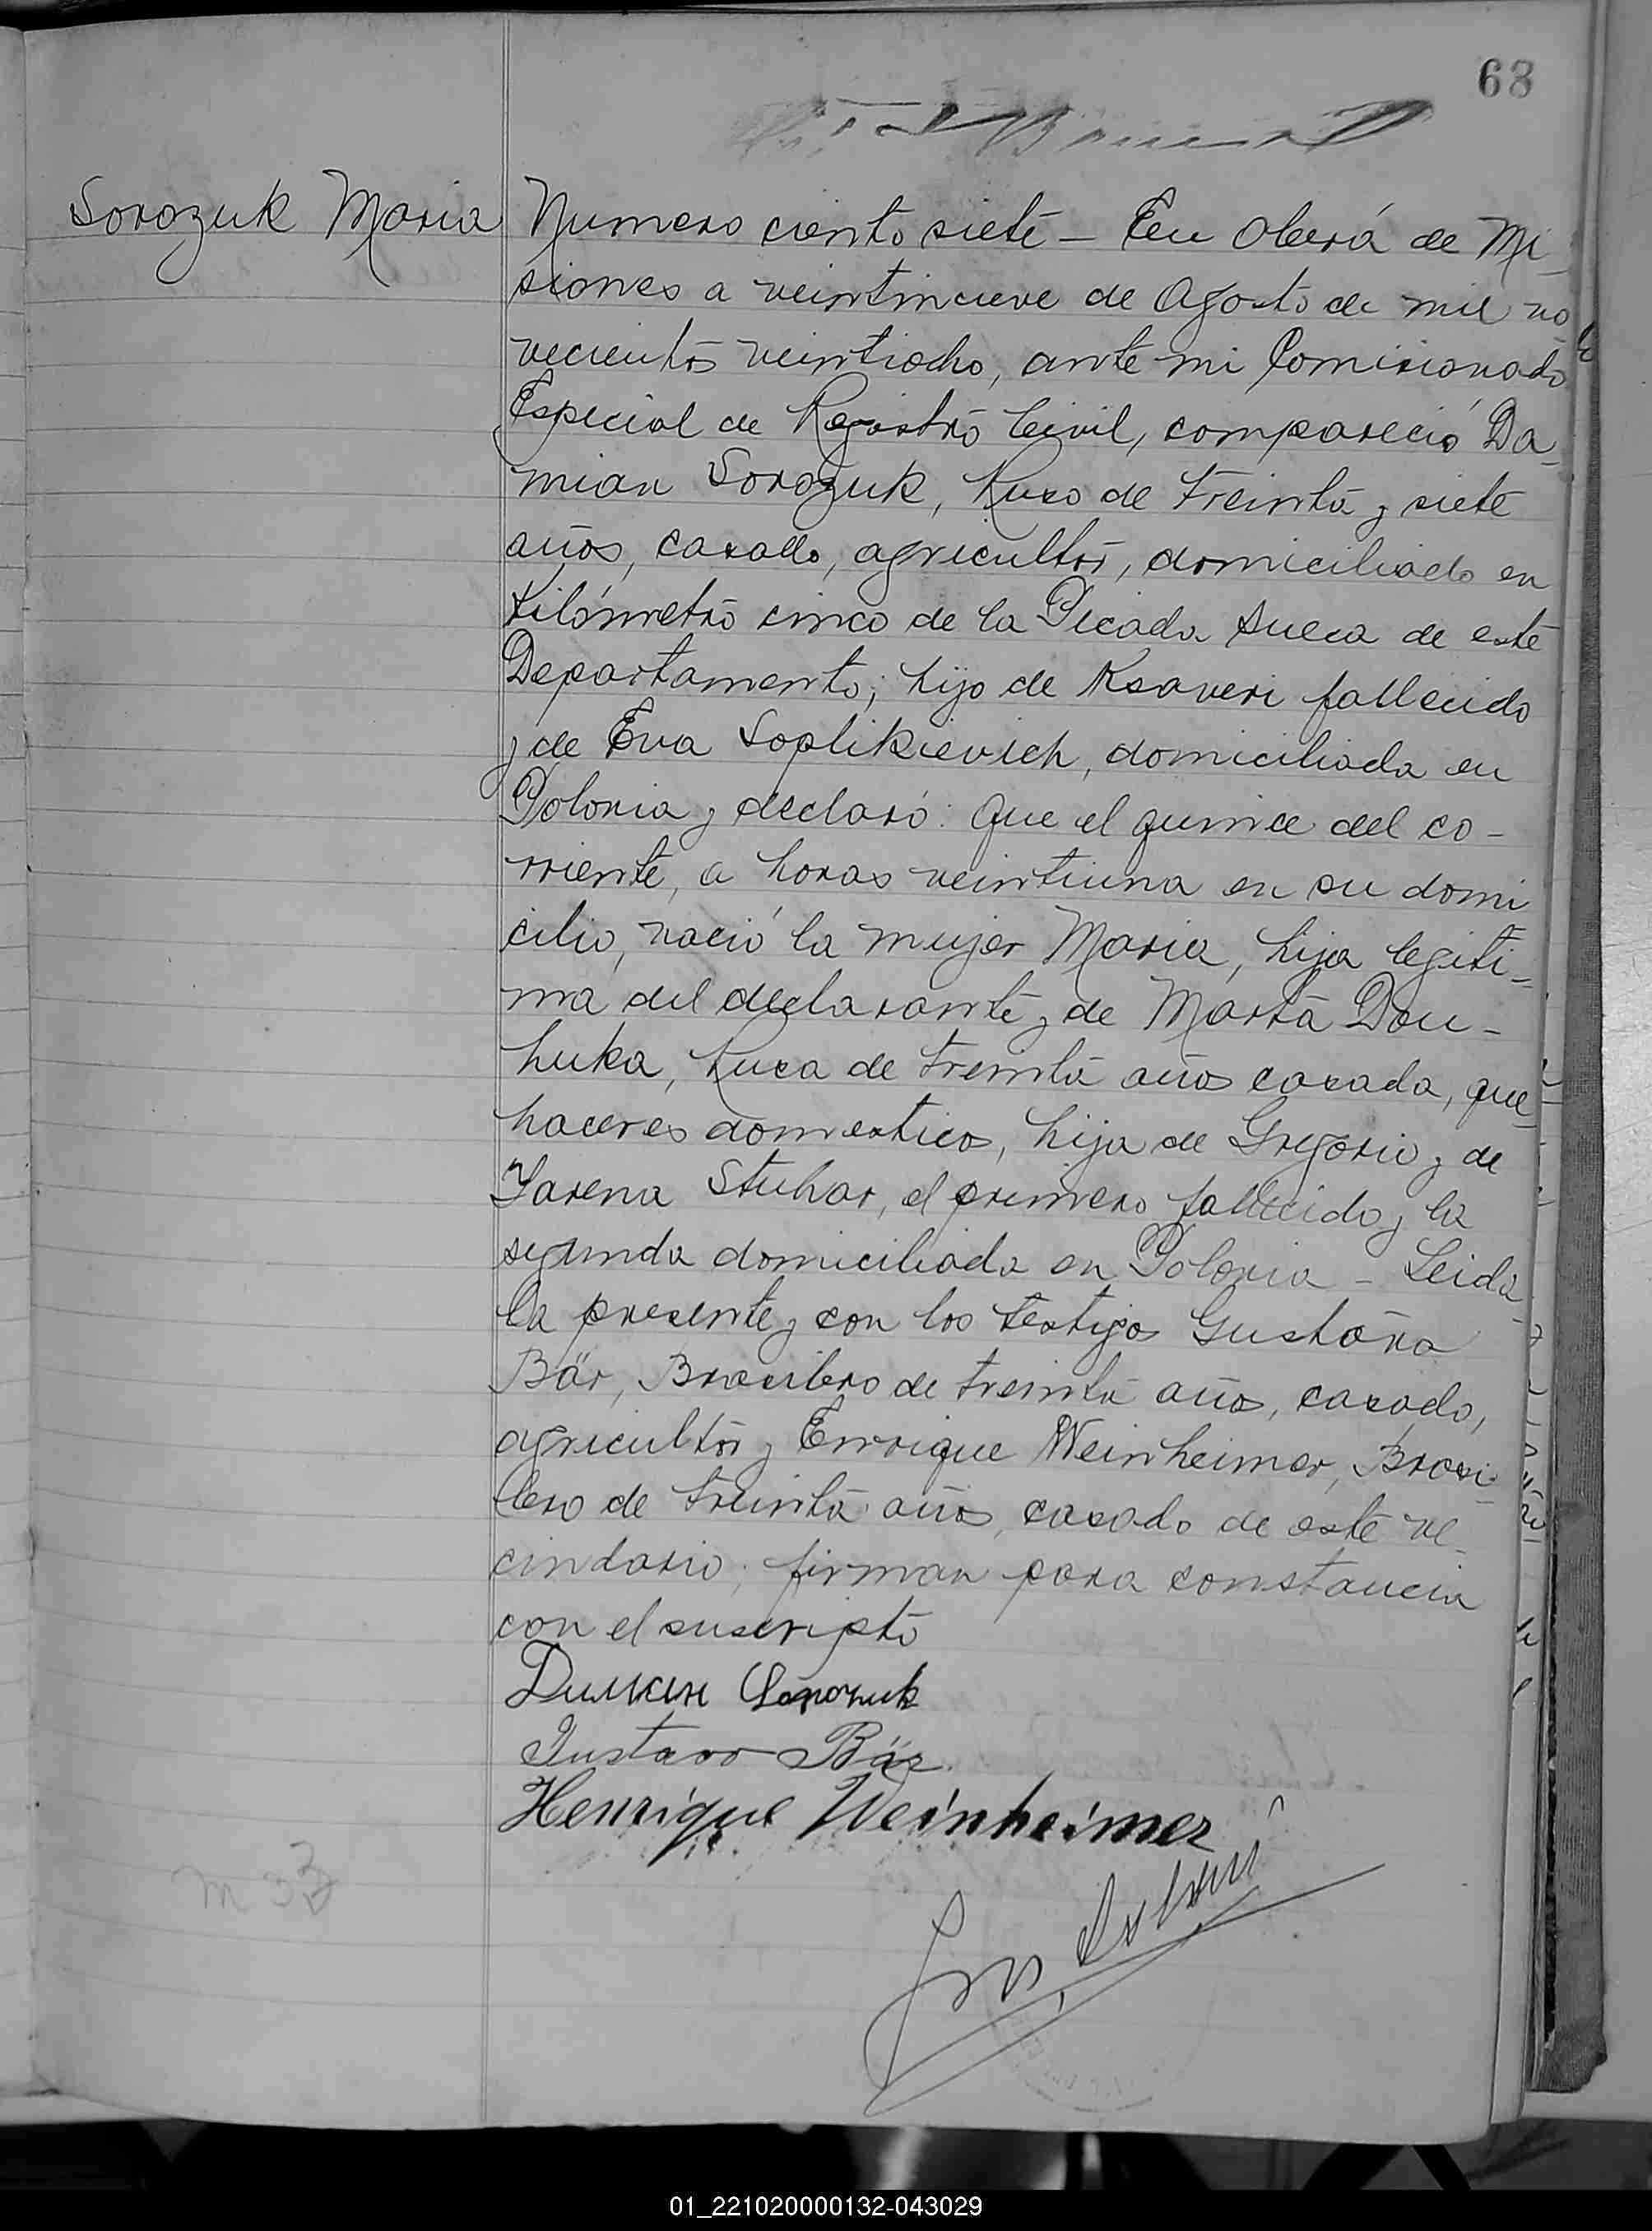 68
Sorozuk Maria
Numero ciento siete – En Oberá de Mi-
siones a veintinueve de Agosto de mil no-
vecientos veintiocho, ante mi Comisionado
Especial de Registro Civil, compareció Da-
mian Sorozuk, Ruso de treinta y siete
años, casado, agricultor, domiciliado en
Kilómetro cinco de la Picada Sueca de este
Departamento; hijo de Ksaveri fallecido
y de Eva Soplikievich, domiciliada en
Polonia y declaró: Que el quince del co-
rriente, a horas veintiuna en su domi
cilio, nació la mujer Maria, hija legiti-
ma del declarante y de Marta Dou-
huka, Rusa de treinta años casada, que-
haceres domesticos, hija de Gregorio y de
Yarena Stuhar, el primero fallecido y la
segunda domiciliada en Polonia – Leida
la presente y con los testigos
Bär, Brasilero de treinta años, casado,
agricultor y Enrique Weinheimer, Brasi-
lero de treinta años, casado de este ve-
cindario; firman para constancia
con el suscripto
Дамиан Sorozuk
Gustavo Bär.
Henrique Weinheimer
01_221020000132-043029